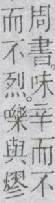 周書。味辛而不
而不烈。嚛與熮